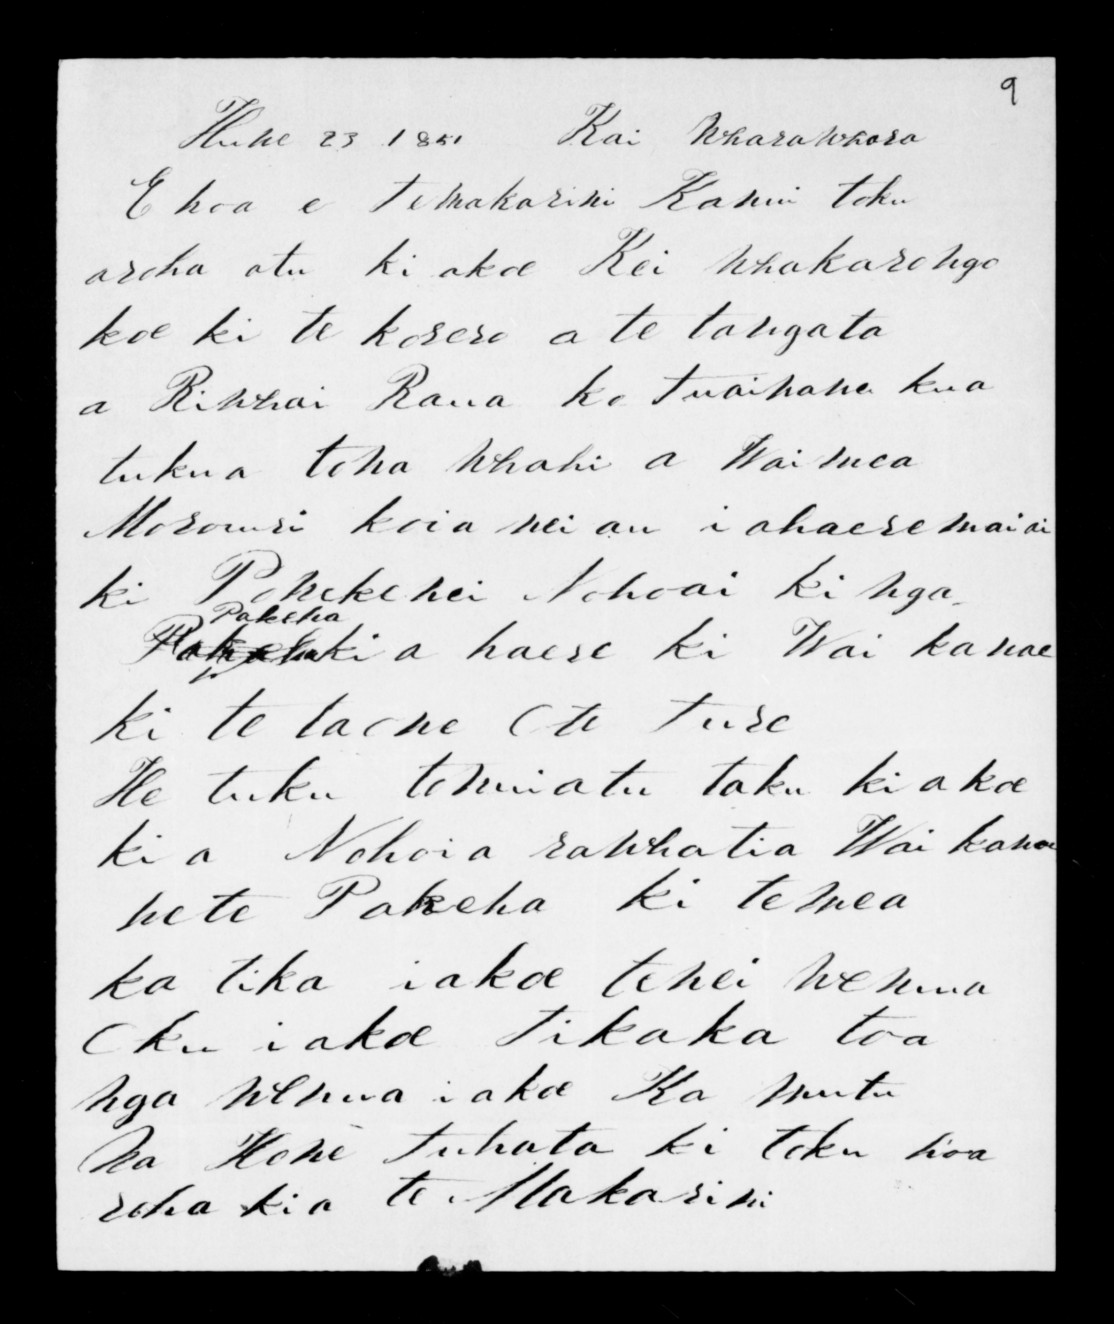 9
Hune 23 1851 Kai Wharawhara
E hoa e temakarini Kanui toku
aroha atu ki akoe Kei whakarongo
koe ki te korero a te tangata
a Riwhai Raua ko Tuainane kua
tukua tona whahi a Waimea
Morouri koia nei au i ahaere maiai
ki Ponekenei Nohoai ki nga
Pakeha
kia haere ki Wai kanae
ki te taone O te ture
He tuku tonuiatu taku ki akoe
kia Nohoia rawhatia Wai kanae
nete Pakeha ki temea
ka tika iakoe tenei wenua
Oku iakoe Tikaka toa
nga wenua iakoe Ka mutu
Na Hone Tuhata ki toku hoa
roha kia te Makarini